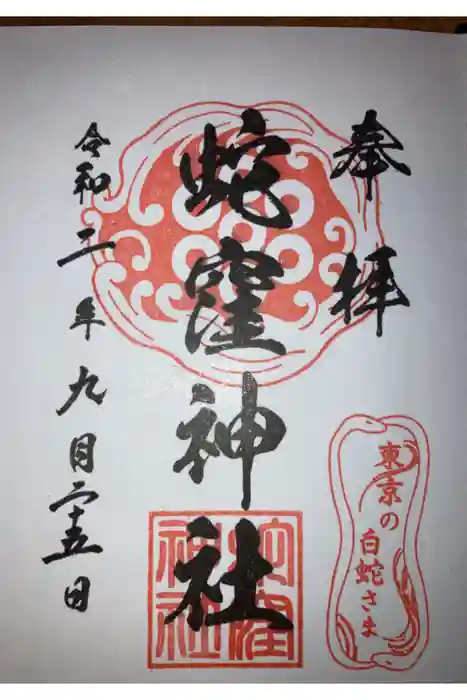 奉拝
蛇窪神社
蛇窪
神社
東京の
白蛇さま
令和二年九月二十五日